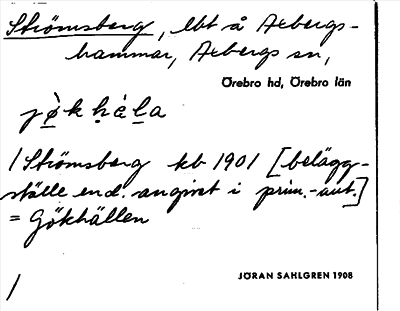 Strömsberg, lht å Axbergs-
hammar, Axbergs sn,
Örebro hd, Örebro län
jö̀kḥáḷa
/ Strömsberg kb 1901 [belägg-
ställe end. angivet i prim.-aut.]
= Gökhällen
JÖRAN SAHLGREN 1908
/